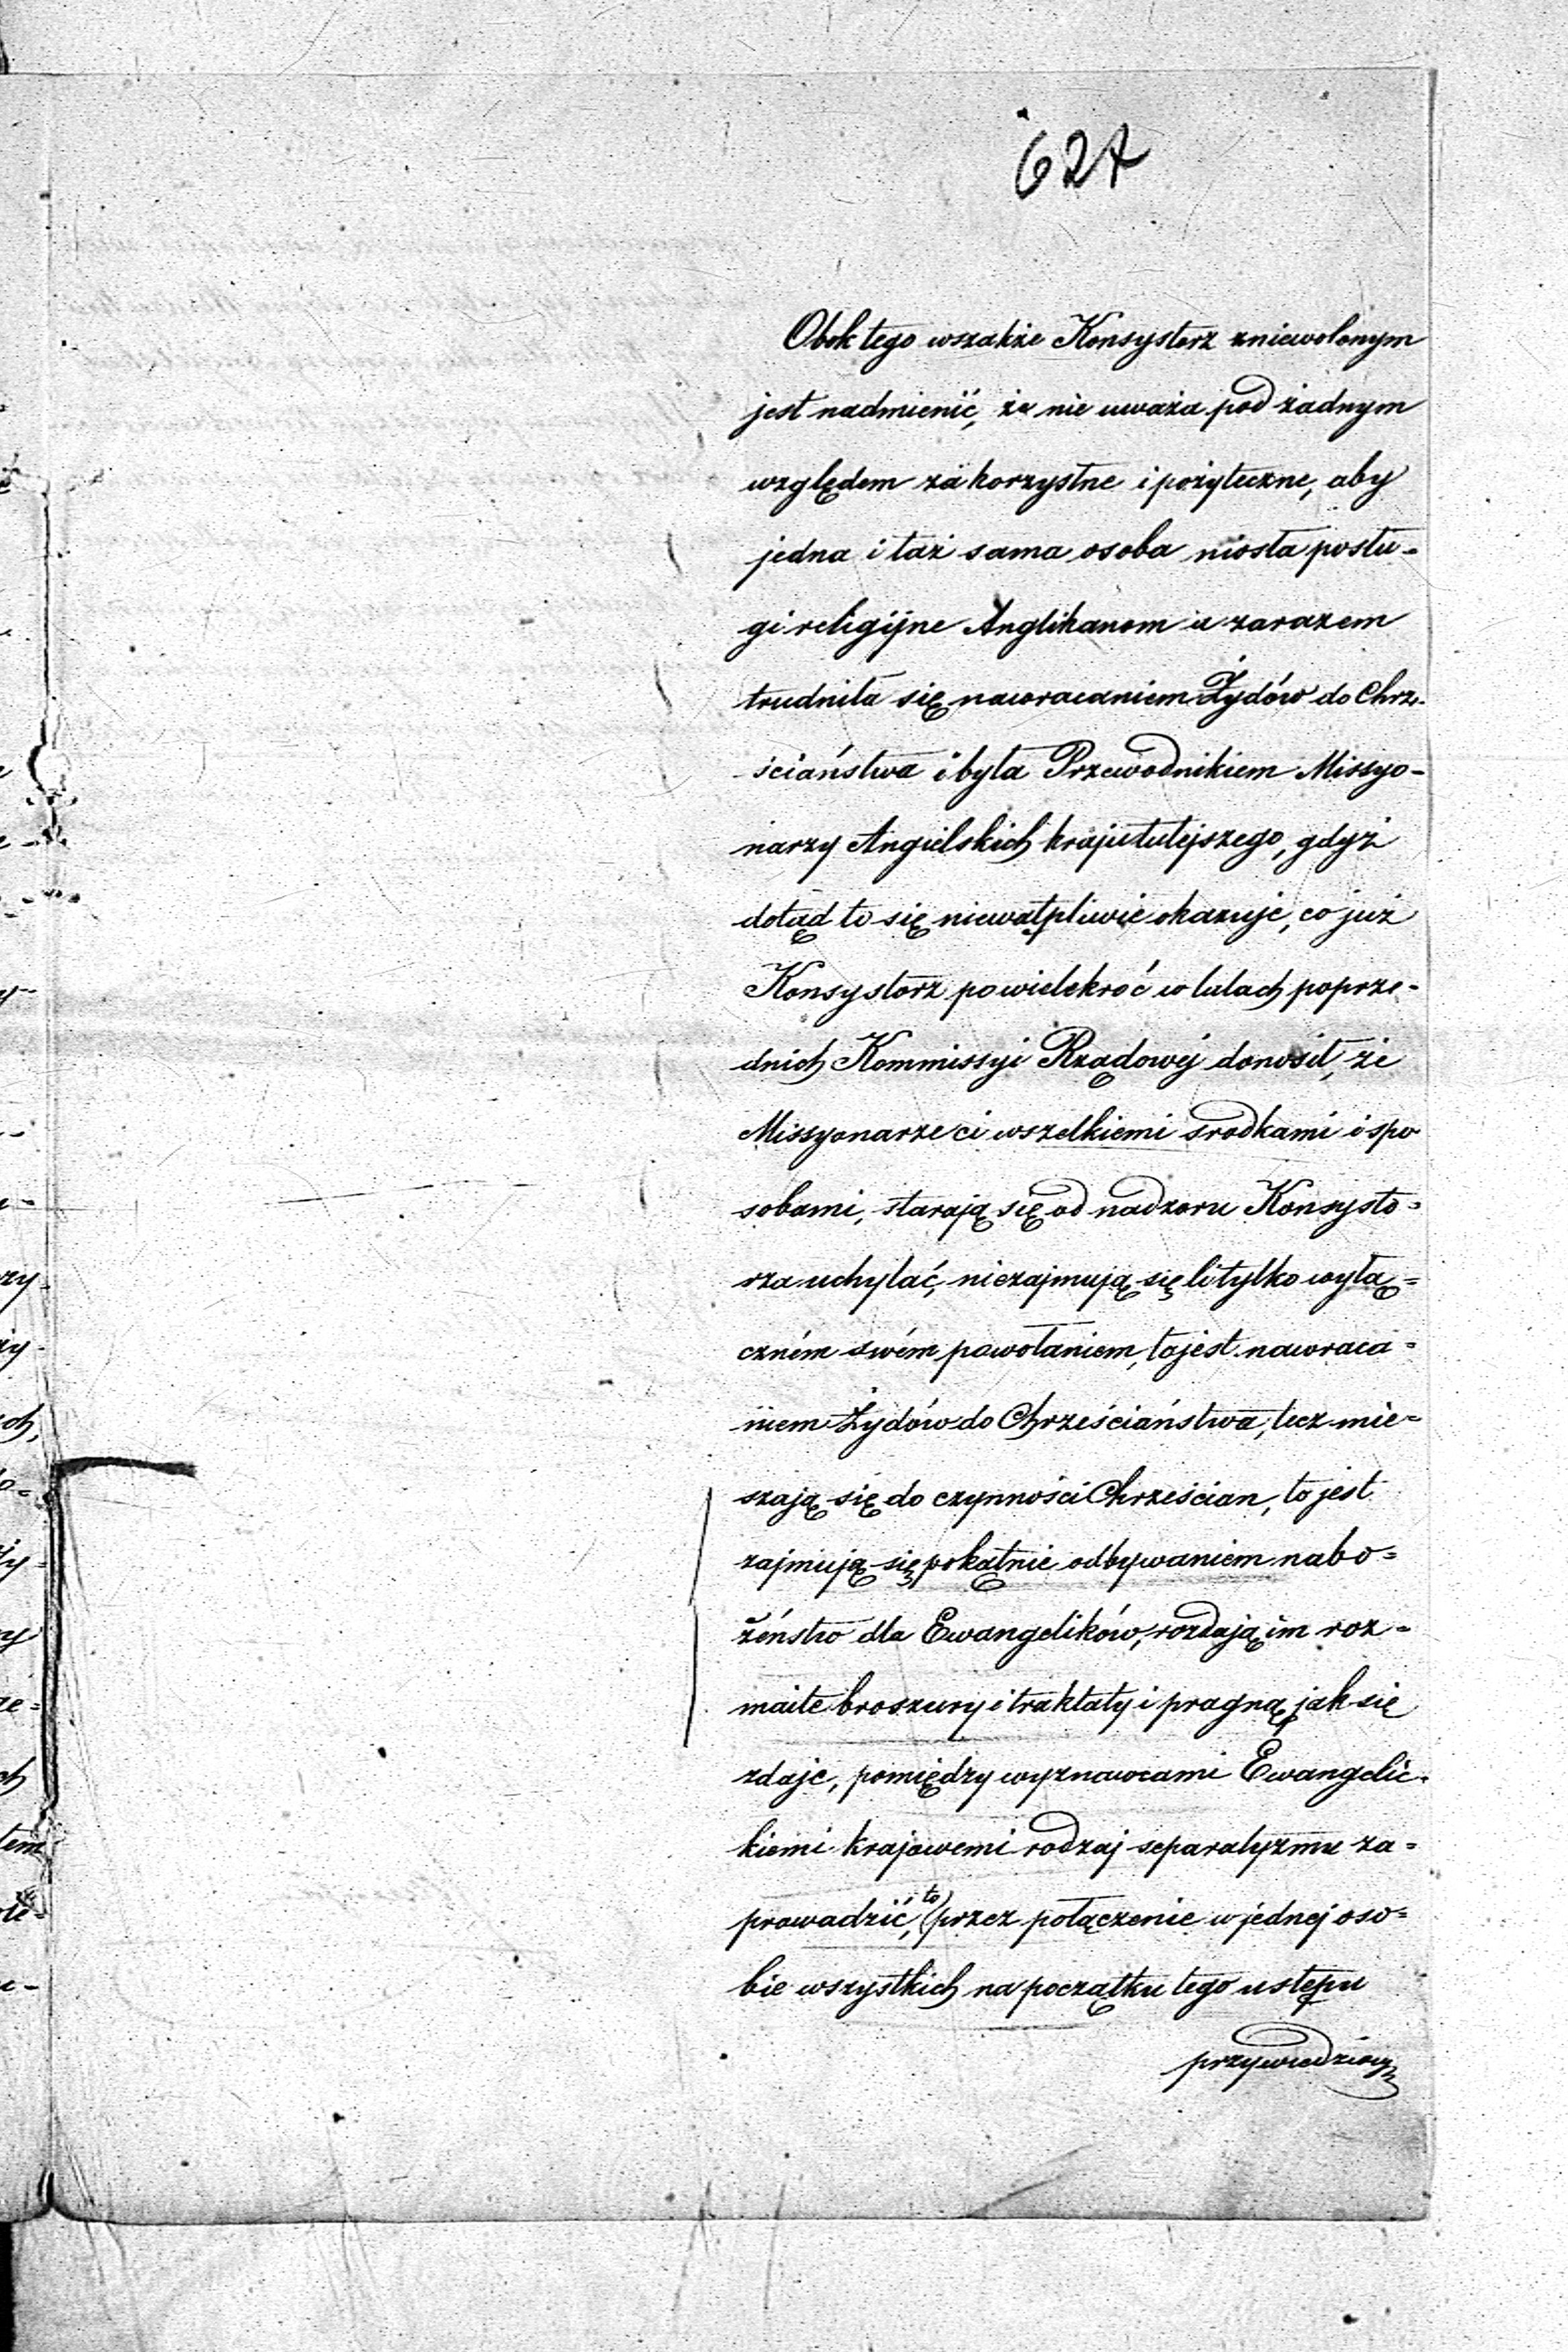 627
Obok tego wszakże Konsystorz zniewolonym
jest nadmienić, że nie uważa pod żadnym
względem za korzystne i pożyteczne, aby
jedna i taż sama osoba niosła posłu-
gi religijne Anglikanom a zarazem
trudniła się nawracaniem Żydów do Chrze-
ściaństwa i była Przewodnikiem Missyo-
narzy Angielskich kraju tutejszego, gdyż
dotąd to się niewątpliwie okazuje, co już
Konsystorz powielekroć w latach poprze-
dnich Kommissyi Rządowéj donosił, że
Missyonarze ci wszelkiemi srodkami i spo
sobami, starają się od nadzoru Konsysto-
rza uchylać, niezajmują się li tylko wyłą-
czném swém powołaniem, tojest nawraca-
niem Żydów do Chrześciaństwa, lecz mie-
szają się do czynności Chrześcian, to jest
zajmują się pokątnie odbywaniem nabo-
żeństw dla Ewangelików, rozdają im roz-
maite broszury i traktaty i pragną jak się
zdaje, pomiędzy wyznawcami Ewangelic-
kiemi krajowemi rodzaj separatyzmu za-
prowadzić, to przez połączenie w jednej oso-
bie wszystkich na początku tego ustępu
przywiedziony